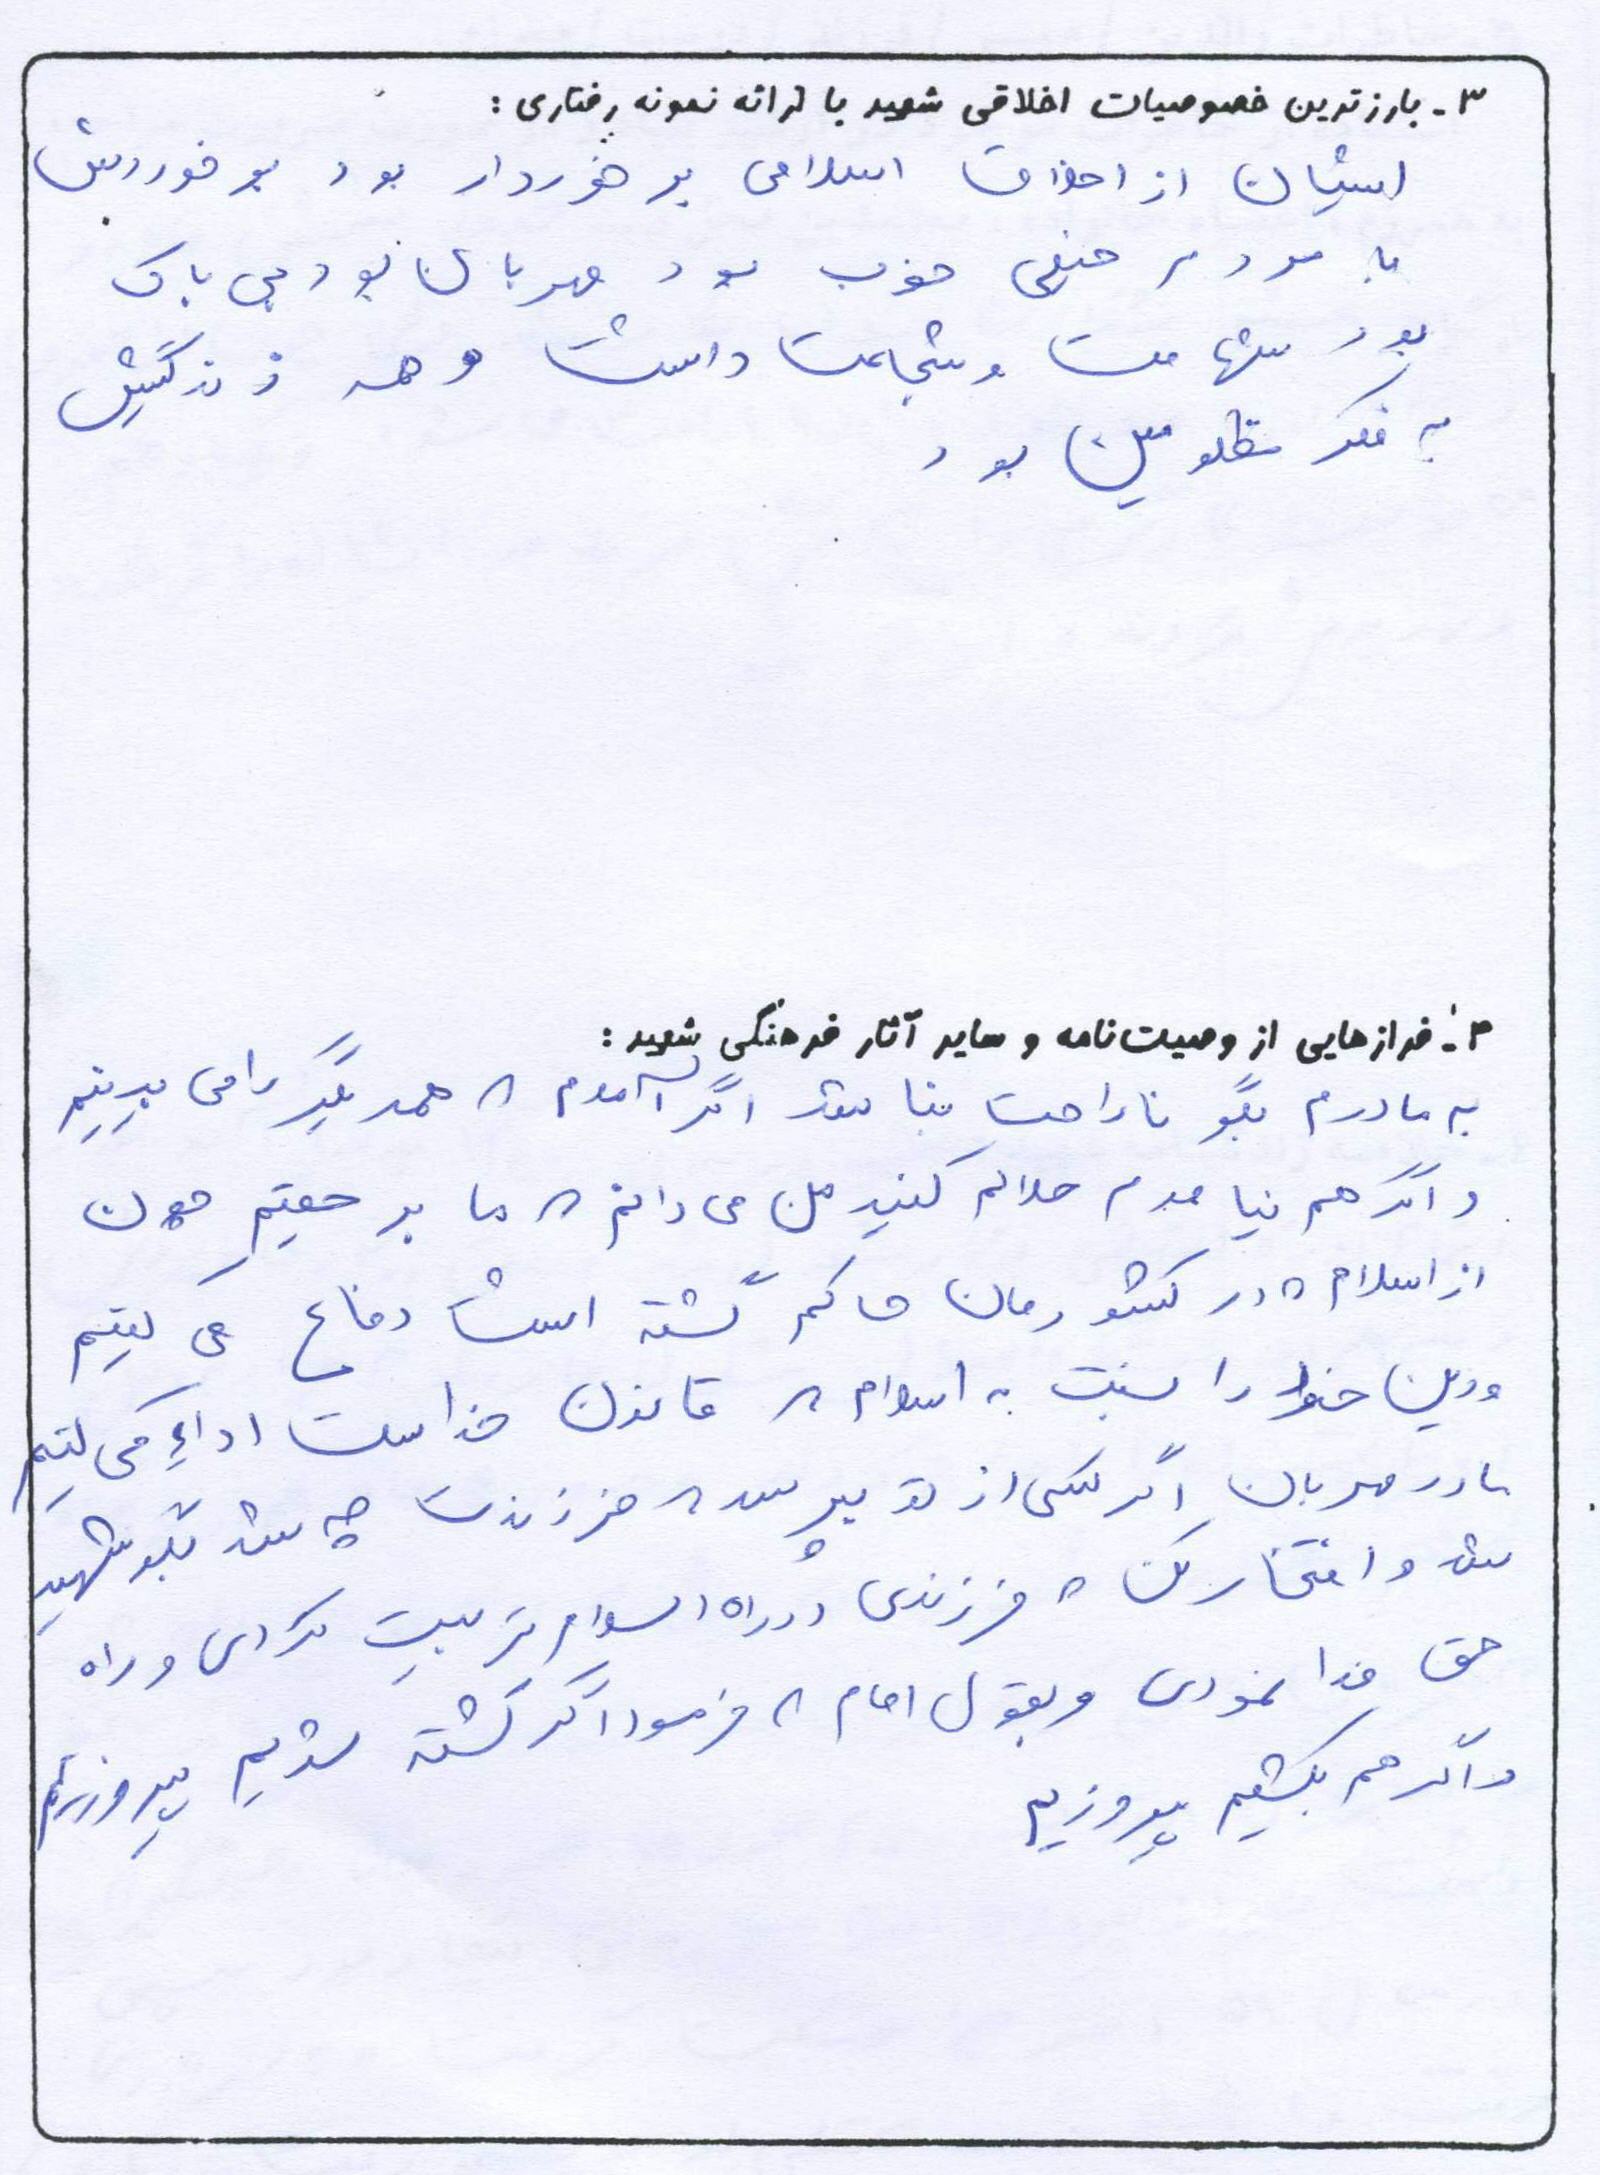 ۳- بارزترین خصوصیات اخلاقی شهید با ارائه نمونه رفتاری :
ایشان از اخلاق اسلامی برخوردار بود برخوردش
با مردم خیلی خوب بود مهربان بود بی باک
بود شهامت و شجاعت داشت و همه زندگیش
به فکر مظلومین بود
۴- فرازهایی از وصیت‌نامه و سایر آثار فرهنگی شهید :
به مادرم بگو ناراحت نباشد اگر آمدم که همدیگر را می بینیم
و اگر هم نیامدم حلالم کنید من می دانم که ما بر حقیم چون
از اسلام که در کشورمان حاکم گشته است دفاع می کنیم
و دین خود را نسبت به اسلام که قانون خداست اداء می کنیم
مادر مهربان اگر کسی از تو پرسد که فرزندت چه شد بگو شهید
شد و افتخار کن که فرزندی در راه اسلام تربیت کردی و راه
حق فدا نمودی و بقول امام که فرمود اگر کشته شدیم پیروزیم
و اگر هم بکشیم پیروزیم